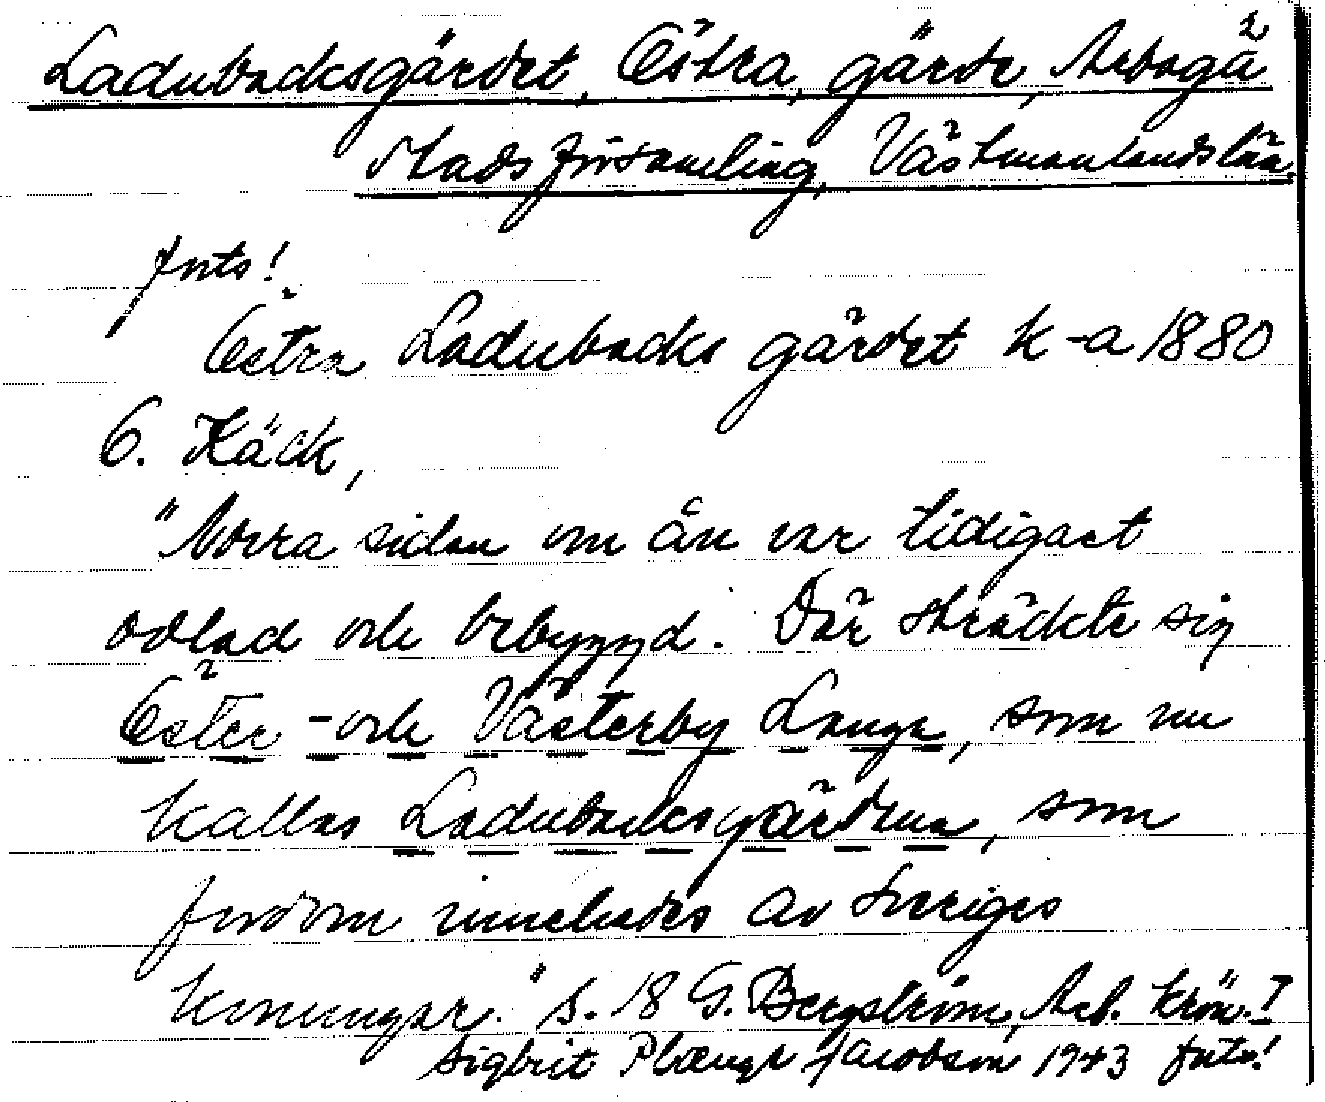 Ladubacksgärdet, Östra, gärde, Arboga
stadsförsamling, Västmanlands län.
forts!
Östra Ladubacks gärdet k-a 1880
6. Käck,
"Norra sidan om ån var tidigast
odlad och bebyggd. Där sträckte sig
Öster- och Västerby Lange, som nu
kallas Ladubacksgärdena, som
fordom innehades av Sveriges
konungar." s. 18 G. Bergström, Arb. Krön. I
Sigbrit Plænge Jacobson 1943 forts!